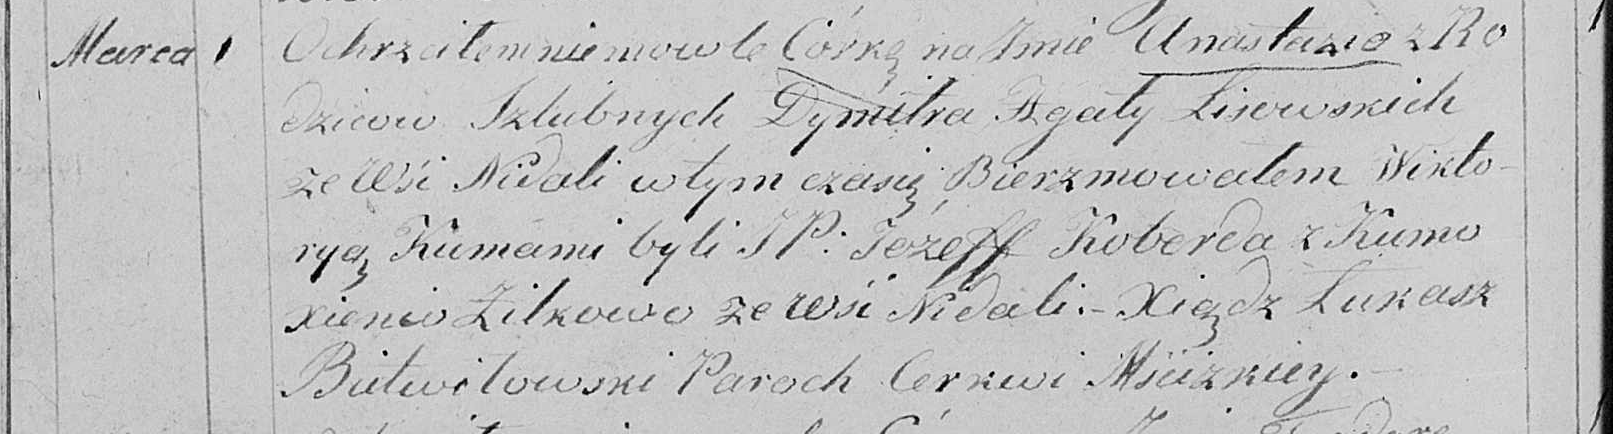 Marca 1 Ochrzciłem niemowle Córkę na Imie Anastazio z Ro
dzicow Szlubnych Dymitra Agaty Lisowskich
ze Wsi Nidali w tym czasię Bierzmowałem Wikto-
ryą Kumami byli JP: Józeff Koberda z Kumo
xienio Żiłkowo ze Wsi Nidali.- Xiądz Łukasz
Butwiłowski Paroch Cerkwi Mścizkiey.-